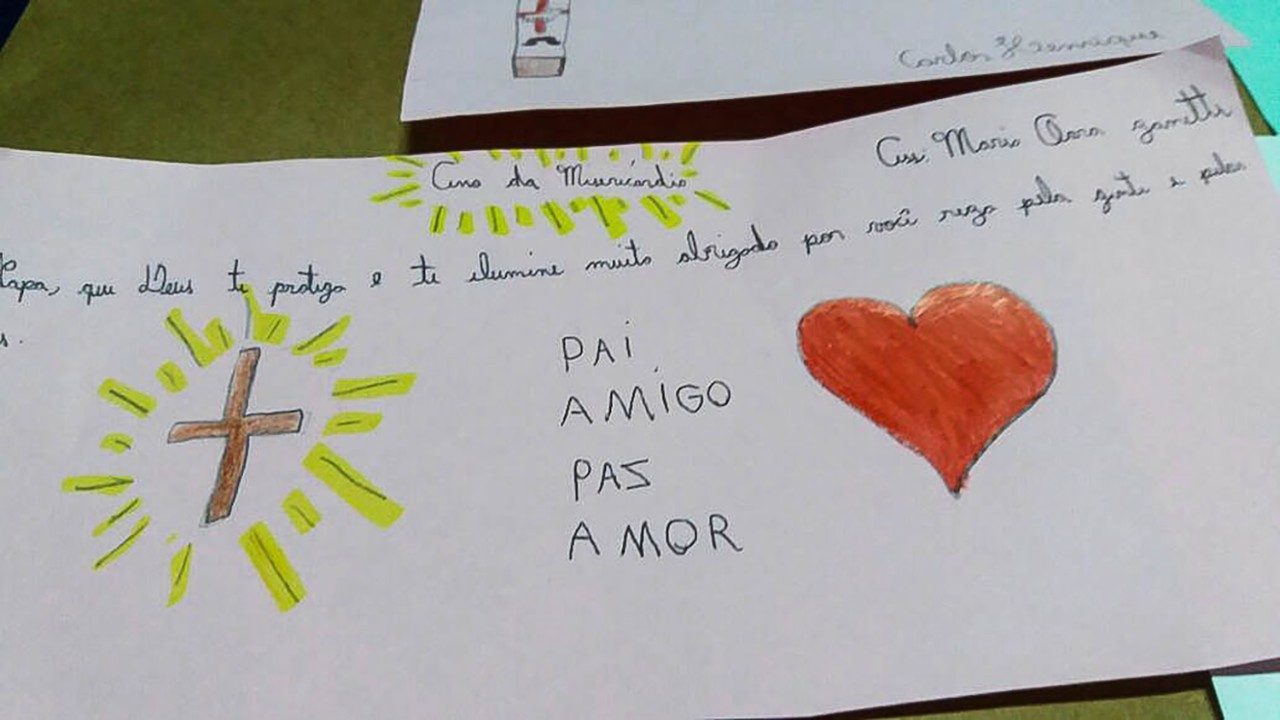 Carlos Henrique
Ass: Maria Clara Zanetti
Ano da Misericórdia
Papa, que Deus te protega e te ilumine muito obrigado por você reza pela gente e pelas
s.
PAI
AMIGO
PAZ
AMOR